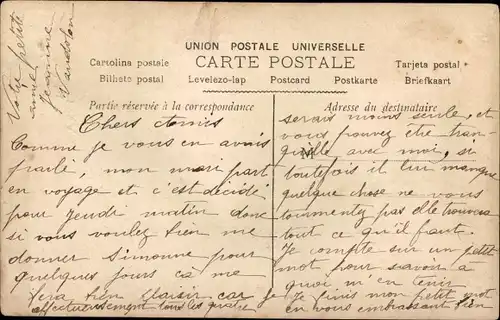 Votre petite
amie
Jeanne
UNION POSTALE UNIVERSELLE
CARTE POSTALE
Cartolina postale
Tarjeta postal
Bilhete postal
Levelezo-lap
Postcard
Postkarte
Briefkaart
Partie réservée à la correspondance
Adresse du destinataire
Chers Amis
Comme je vous en avais
parlé, mon mari part
en voyage et c'est décidé
pour Jeudi matin donc
si vous voulez bien me
donner Simonne pour
quelques jours ca me
fera bien plaisir car je
serais moins seule, et
vous pouvez être tran
quille avec moi, si
toutefois il lui manque
quelque chose ne vous
tourmentez pas elle trouvera
tout ce qu'il faut.
Je compte sur un petit
mot pour savoir a
quoi m'en tenir
Je finis mon petit mot
en vous embrassant bien
affectueusement tous les quatre